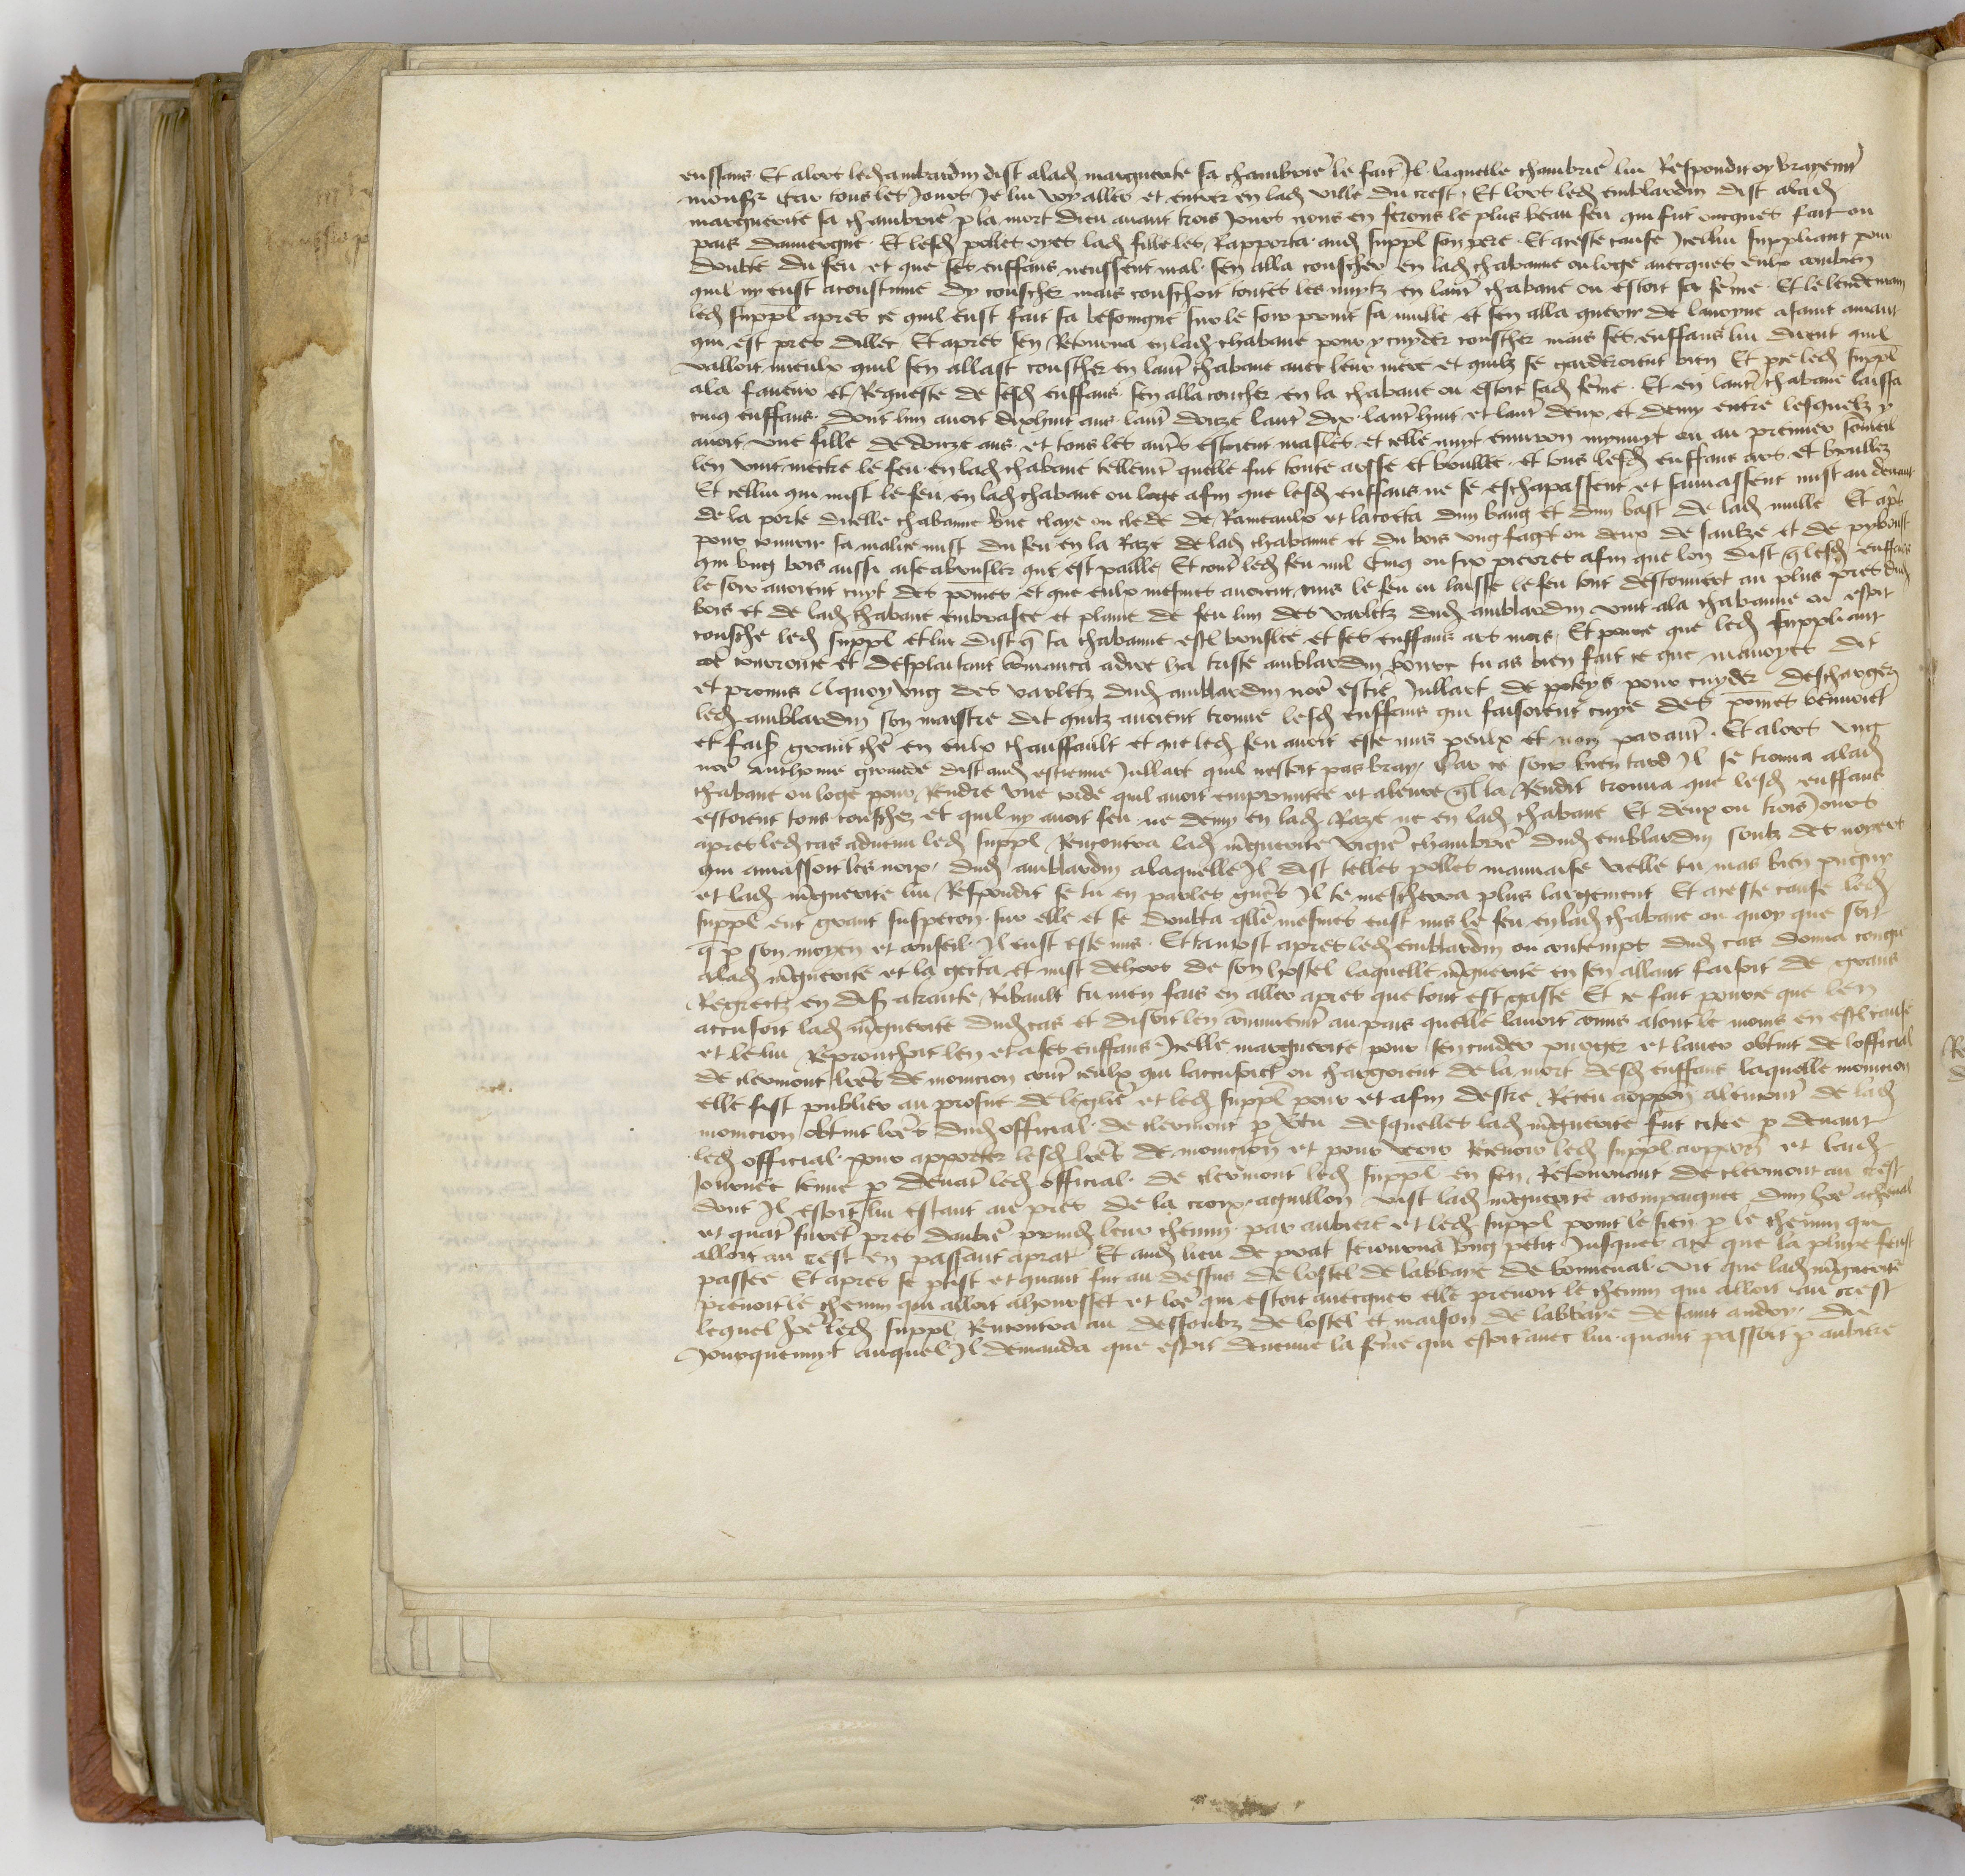 enffans Et alors led amblardin dist alad marguerite sa chambriē le fait Il laquelle chambriē lui Respondit oy vrayemt
monsr Car tous les Jours Je lui voy aller et entrer en lad ville du crest Et lors led emblardin dist alad
marguerite sa chambriē p la mort dieu auant trois Jours nous en ferons le plus beau feu qui fut oncques fait ou
pais dauuergne Et lesd polles oyes lad fille les Rapporta aud suppl son pere Et aceste cause Icellui suppliant pour
doubte du feu et que ses enffans neussent mal sen alla couscher en lad chabanne ou loge auecques eulx combien
quil ny eust acoustume dy couscher mais couschoit toutes les nuytz en lautr chabane ou estoit sa fēme Et le lendemain
led suppl apres ce quil eust fait sa besoingne sur le soir print sa mulle et sen alla querir de lauoyne asaint amant
qui est pres dillec Et apres sen Retourna en lad chabane pour y cuyder couscher mais ses enffans lui dirent quil
valloit mieulx quil sen allast couscher en lautr chabane auec leur mere et quilz se garderoient bien Et pce led suppl
ala faueur et Requeste de sesd enffans sen alla coucher en la chabane ou estoit sad fēme Et en lautr chabane laissa
cinq enffans dont lun auoit dixhuit ans lautr douze lautr dix lautr huit et lautr deux et demy entre lesquelz y
auoit une fille de douze ans et tous les autrs estoient masles et celle nuyt enuiron mynuyt ou au premier sōmeil
len vint mectre le feu en lad chabane tellemt quelle fut toute arsse et brullee et tous lesd enffans ars et brullez
Et cellui qui mist le feu en lad chabane ou loge afin que lesd enffans ne se eschapassent et sauuassent mist au deuant
de la porte dicelle chabanne vne claye ou clede de Rameaulx et lacotta dun banq et dun bast de lad mulle Et aps
pour couurir sa malice mist du feu en la Raze de lad chabanne et du bois ung fagt ou deux de saulze et de
qui ung bois aussi aise abrusler que est paille Et contr led feu mil Cinq ou six pierres afin que lon dist q lesd enffans
le soir auoient cuyt des pomes et que eulx mesmes auoient mis le feu ou laisse le feu tout descouuert au plus pres dud
bois et de lad chabane embrasee et plaine de feu lun des varletz dud amblardin vint ala chabanne ou estoit
cousche led suppl et lui dist q sa chabanne estoit bruslee et ses enffans ars mors Et pource que led suppliant
et desplaisant cōmanca adire ha triste amblardin tu as bien fait ce que mauoyes dit
et promis Aquoy ung des varletz dud amblardin noē estiē Jullart de pour cuyder descharger
led amblardin son maistre dit quilz auoient trouue lesd enffans qui faisoient cuyre des pomes
et faisr grant chē en eulx chauffault et que led feu auoit este mis peulx et non par autr Et alors ung
noē Anthoine grande dist aud estienne Jullart quil nestoit pas vray Car ce soir bien tard Il se trouua alad
chabane ou loge pour Rendre une que quil auoit empruntee et aleure ql la Rendit trouua que lesd enffans
estoient tous couschez et quil ny auoit feu ne demy en lad Raze ne en lad chabane Et deux ou trois Jours
apres led cas aduenu led suppl Rencontra lad mguerite chambriē dud emblardin soubz des noyers
qui amassoit les noix dud amblardin alaquelle Il dist telles polles mauuaise vielle tu mas bien
et lad mguerite lui Respondit se tu en parles guers Il te mescherra plus largement Et aceste cause led
suppl eut grant suspecon sur elle et se doubta qlle mesmes eust mis le feu en lad chabane ou quoy que soit
q p son moyen et conseil Il eust este mis Et tantost apres led emblardin ou contempt dud cas donna congie
alad mguerite et la gecta et mist dehors de son hostel laquelle mguerite en sen allant faisoit de grans
Regrectz en disr atraitre Ribault tu men fais en aller apres que tout est gaste Et ce fait pource que len
accusoit lad mguerite dud cas et disoit len cōmunemt au pais quelle lauoit comis atout le moins en estoit cause
et le lui Reprouchoit len et ases enffans Icelle marguerite pour sen cuider purger et lauer obtint de lofficial
de clermont lres de monicion contr ceulx qui lacusoient ou chargoient de la mort desd enffans laquelle monicion
elle fist publier au prosne de leglise et led suppl pour et afin destre Receu aopposn alencontr de lad
monicion obtint lres dud official de clermont p vtu desquelles lad mguerite fut citee p deuant
led official pour apporter lesd lres de monicion et pour veoir Receuoir led suppl aopposn et lad
Journee tenue p deuant led official de clermont led suppl en sen Retournant de clermont au crest
dont Il estoit lui estant au pres de la croix aguillon vist lad mguerite acompaignee dun hoē acheual
et quant furēt pres daubiere prindr leur chemin par aubiere et led suppl print le sien p le chemin qui
alloit au crest en passant aprat Et aud lieu de prat seiourna ung petit Jusques ace que la pluye feust
passee Et apres se ptist et quant fut au dessus de lostel de labbaye de bonneual vit que lad mguerite
prenoit le chemin qui alloit alhoursset et loē qui estoit auecques elle prenoit le chemin qui alloit au crest
lequel hoē led suppl Rencontra au dessoubz de lostel et maison de labbaye de saint andry du
Jourquenuyt auquel Il demanda que estoit deuenue la fēme qui estoit auec lui quant passoit p aubiere